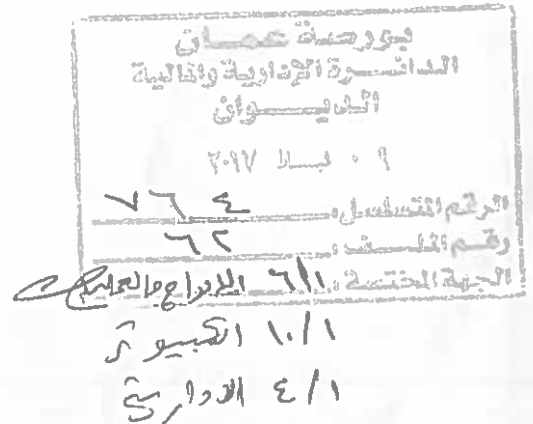 بورصة عمان
الدائرة الإدارية والمالية
الديوان
٠٩ شباط ٢٠١٧
الرقم المتسلسل: ٧٦٤
رقم الملف: ٦٢
الجهة المختصة: ٦/١ الإدراج والعمليات
١٠/١ الكمبيوتر
٤/١ الادارية